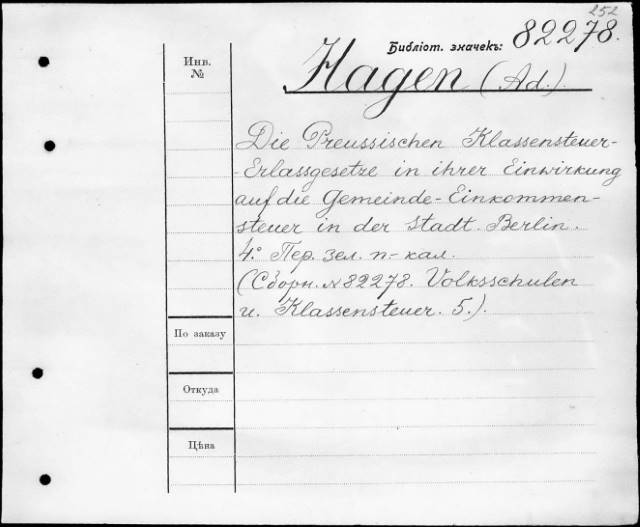 252
Библіот. значекъ: 82278.
Инв.
№
Hagen (Ad.).
Die Preussischen Klassensteuer-
-Erlassgesetze in ihrer Einwirkung
auf die Gemeinde-Einkommen-
steuer in der Stadt Berlin.
4º. Пер. зел. п-кал.
(Сборн. № 82278. Volksschulen
u. Klassensteuer. 5.).
По заказу
Откуда
Цѣна